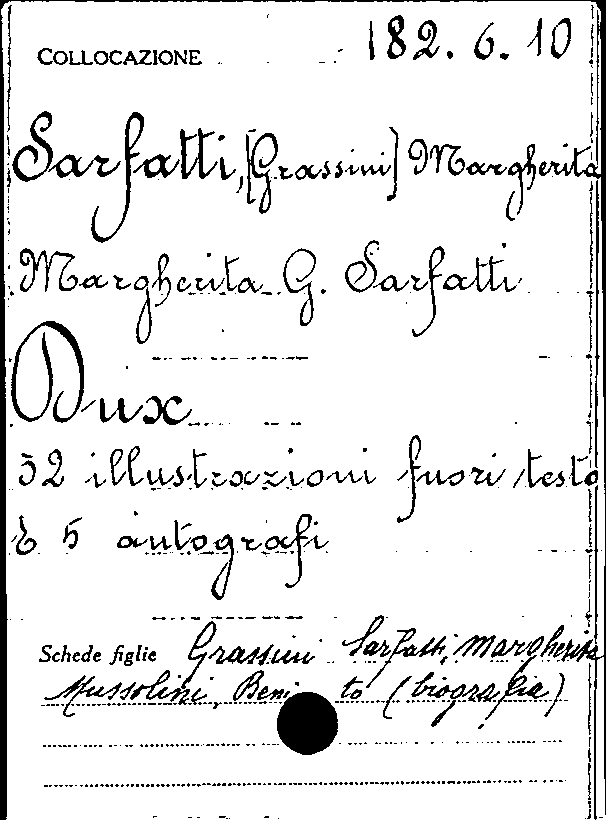 COLLOCAZIONE 182. 6. 10
Sarfatti, [Grassini] Margherita
Margherita G. Sarfatti
Dux
52 illustrazioni fuori testo
E 5 autografi
Schede figlie Grassini Sarfatti, Margherita
Mussolini, Beni to (biografia)